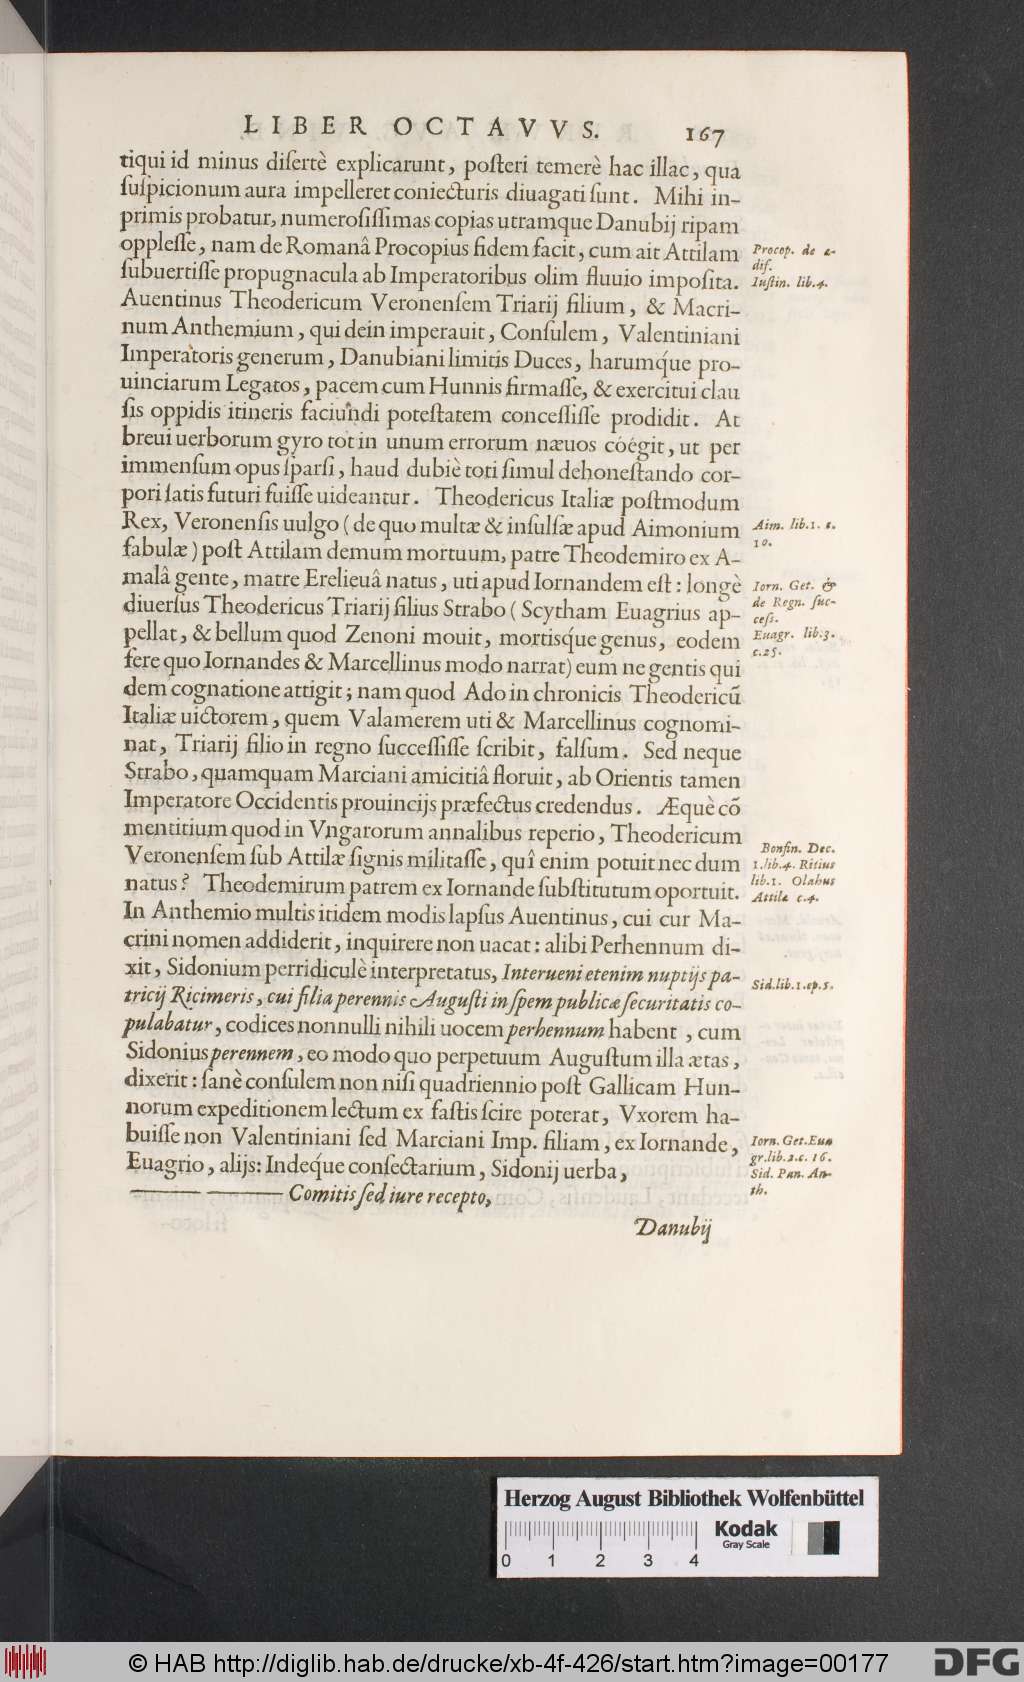 LIBER OCTAVVS. 167
tiqui id minus disertè explicarunt, posteri temerè hac illac, qua
suspicionum aura impelleret coniecturis diuagati sunt. Mihi in-
primis probatur, numerosissimas copias utramque Danubij ripam
opplesse, nam de Romanâ Procopius fidem facit, cum ait Attilam
subuertisse propugnacula ab Imperatoribus olim fluuio imposita.
Auentinus Theodericum Veronensem Triarij filium, & Macri-
num Anthemium, qui dein imperauit, Consulem, Valentiniani
Imperatoris generum, Danubiani limitis Duces, harumq́ue pro-
uinciarum Legatos, pacem cum Hunnis firmasse, & exercitui clau
sis oppidis itineris faciundi potestatem concessisse prodidit. At
breui uerborum gyro tot in unum errorum næuos cóégit, ut per
immensum opus sparsi, haud dubiè toti simul dehonestando cor-
pori satis futuri fuisse uideantur. Theodericus Italiæ postmodum
Rex, Veronensis uulgo (de quo multæ & insulsæ apud Aimonium
fabulæ) post Attilam demum mortuum, patre Theodemiro ex A-
malâ gente, matre Erelieuâ natus, uti apud Iornandem est: longè
diuersus Theodericus Triarij filius Strabo (Scytham Euagrius ap-
pellat, & bellum quod Zenoni mouit, mortisq́ue genus, eodem
fere quo Iornandes & Marcellinus modo narrat) eum ne gentis qui
dem cognatione attigit; nam quod Ado in chronicis Theodericũ
Italiæ uictorem, quem Valamerem uti & Marcellinus cognomi-
nat, Triarij filio in regno successisse scribit, falsum. Sed neque
Strabo, quamquam Marciani amicitiâ floruit, ab Orientis tamen
Imperatore Occidentis prouincijs præfectus credendus. Æquè cõ
mentitium quod in Vngarorum annalibus reperio, Theodericum
Veronensem sub Attilæ signis militasse, quî enim potuit nec dum
natus? Theodemirum patrem ex Iornande substitutum oportuit.
In Anthemio multis itidem modis lapsus Auentinus, cui cur Ma-
crini nomen addiderit, inquirere non uacat: alibi Perhennum di-
xit, Sidonium perridiculè interpretatus, Interueni etenim nuptijs pa-
tricij Ricimeris, cui filia perennis Augusti in spem publicæ securitatis co-
pulabatur, codices nonnulli nihili uocem perhennum habent, cum
Sidonius perennem, eo modo quo perpetuum Augustum illa ætas,
dixerit: sanè consulem non nisi quadriennio post Gallicam Hun-
norum expeditionem lectum ex fastis scire poterat, Vxorem ha-
buisse non Valentiniani sed Marciani Imp. filiam, ex Iornande,
Euagrio, alijs: Indeq́ue consectarium, Sidonij uerba,
Comitis sed iure recepto,
Danubij
Procop. de æ-
dif.
Iustin. lib.4.
Aim. lib.1. c.
10.
Iorn. Get. &
de Regn. suc-
cess.
Euagr. lib.3.
c.25.
Bonfin. Dec.
1.lib.4. Ritius
lib.1. Olahus
Attilæ c.4.
Sid.lib.1.ep.5.
Iorn. Get. Eua
gr.lib.2.c.16.
Sid. Pan. An-
th.
Herzog August Bibliothek Wolfenbüttel
0 1 2 3 4
Kodak
Gray Scale
© HAB http://diglib.hab.de/drucke/xb-4f-426/start.htm?image=00177
DFG